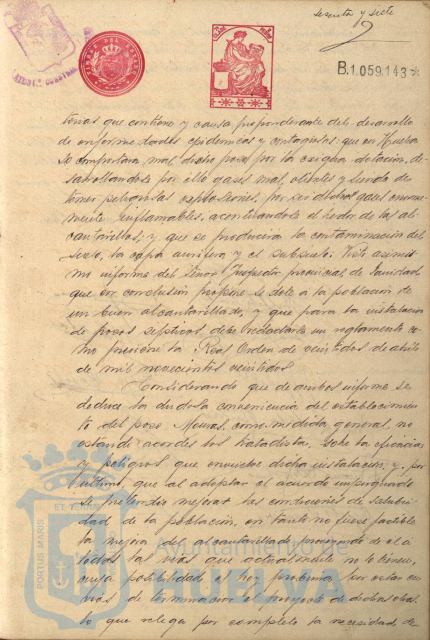 sesenta y siete
B.1.059.143*
terias que contiene y causa preponderante del desarrollo
de enfermedades epidemicas y contagiosas: que en Huelva
se comportara mal dicho pozo por la exigua dotacion, de-
sarrollandose por ello gases mal olientes y siendo de
temer peligrosas explosiones, por ser dichos gases enorme-
mente inflamables, acentuandose el hedor de las al-
cantarillas, y que se produciria la contaminacion del
suelo, la capa acuifera y el subsuelo: Visto asimis-
mo informe del Señor Inspector provincial de Sanidad
que en conclusion propone se dote á la poblacion de
un buen alcantarillado, y que para la instalacion
de pozos septicos debe redactarse un reglamento co-
mo previene la Real Orden de veintidos de abril
de mil novecientos veintidos.
Considerando que de ambos informes se
deduce la dudosa conveniencia del establecimien-
to del pozo Mouras, como medida general, no
estando acordes los tratadistas, sobre la eficacia
y peligros que envuelve dicha instalacion y, por
ultimo, que al adoptar el acuerdo impugnado
se pretendia mejorar las condiciones de salubri-
dad de la poblacion, en tanto no fuese factible
la mejora del alcantarillado proveyendo de él a
todas las vias que actualmente no lo tienen,
cuya posibilidad es hoy proxima, por estar en
vias de terminacion el proyecto de dichas obras
lo que relega por completo la necesidad de
PORTUS MARIS
ET TERRAE
Ayuntamiento de
HUELVA